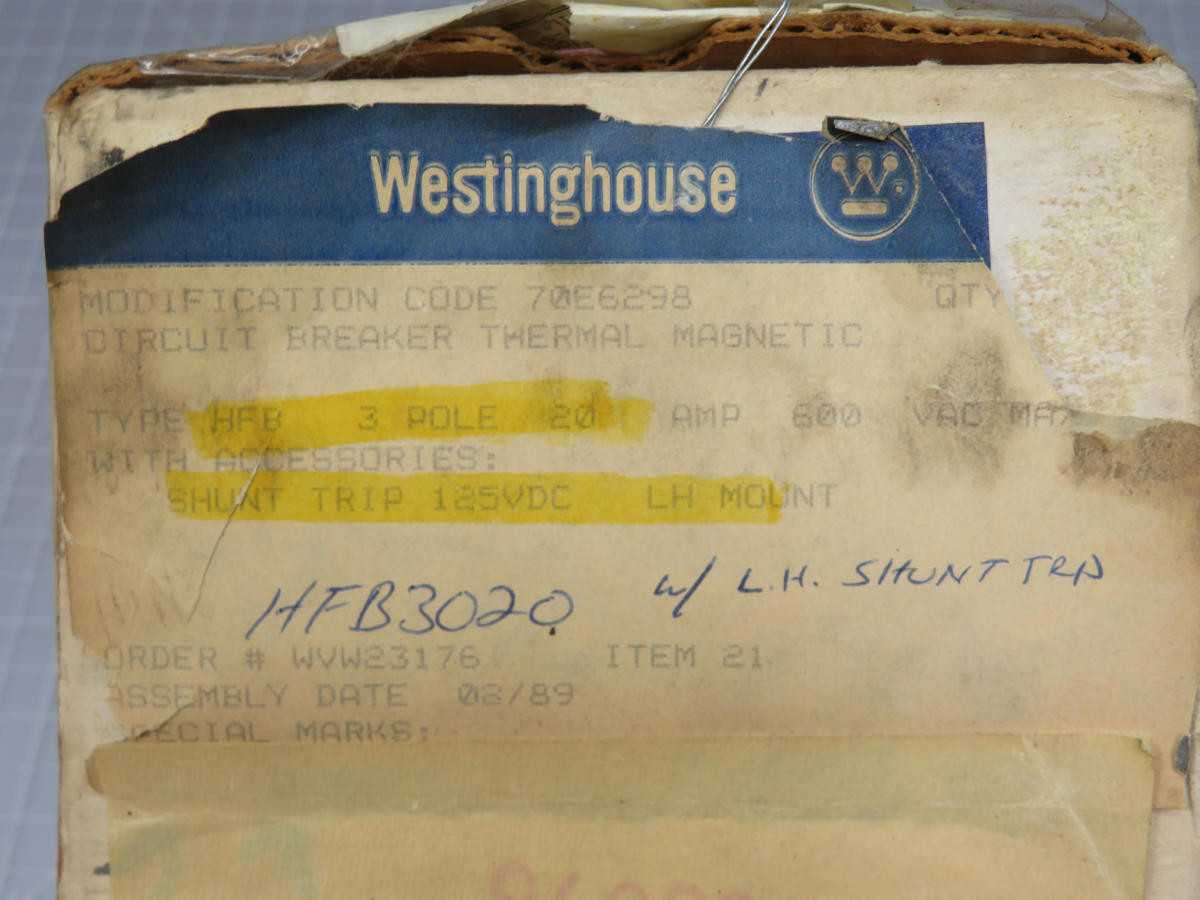 Westinghouse
MODIFICATION CODE 70E6298 QTY
CIRCUIT BREAKER THERMAL MAGNETIC
TYPE HFB 3 POLE 20 AMP 600 VAC MAX
WITH ACCESSORIES:
SHUNT TRIP 125VDC LH MOUNT
HFB3020 w/ L.H. SHUNT TRP
ORDER # WVW23176 ITEM 21
ASSEMBLY DATE 02/89
SPECIAL MARKS: